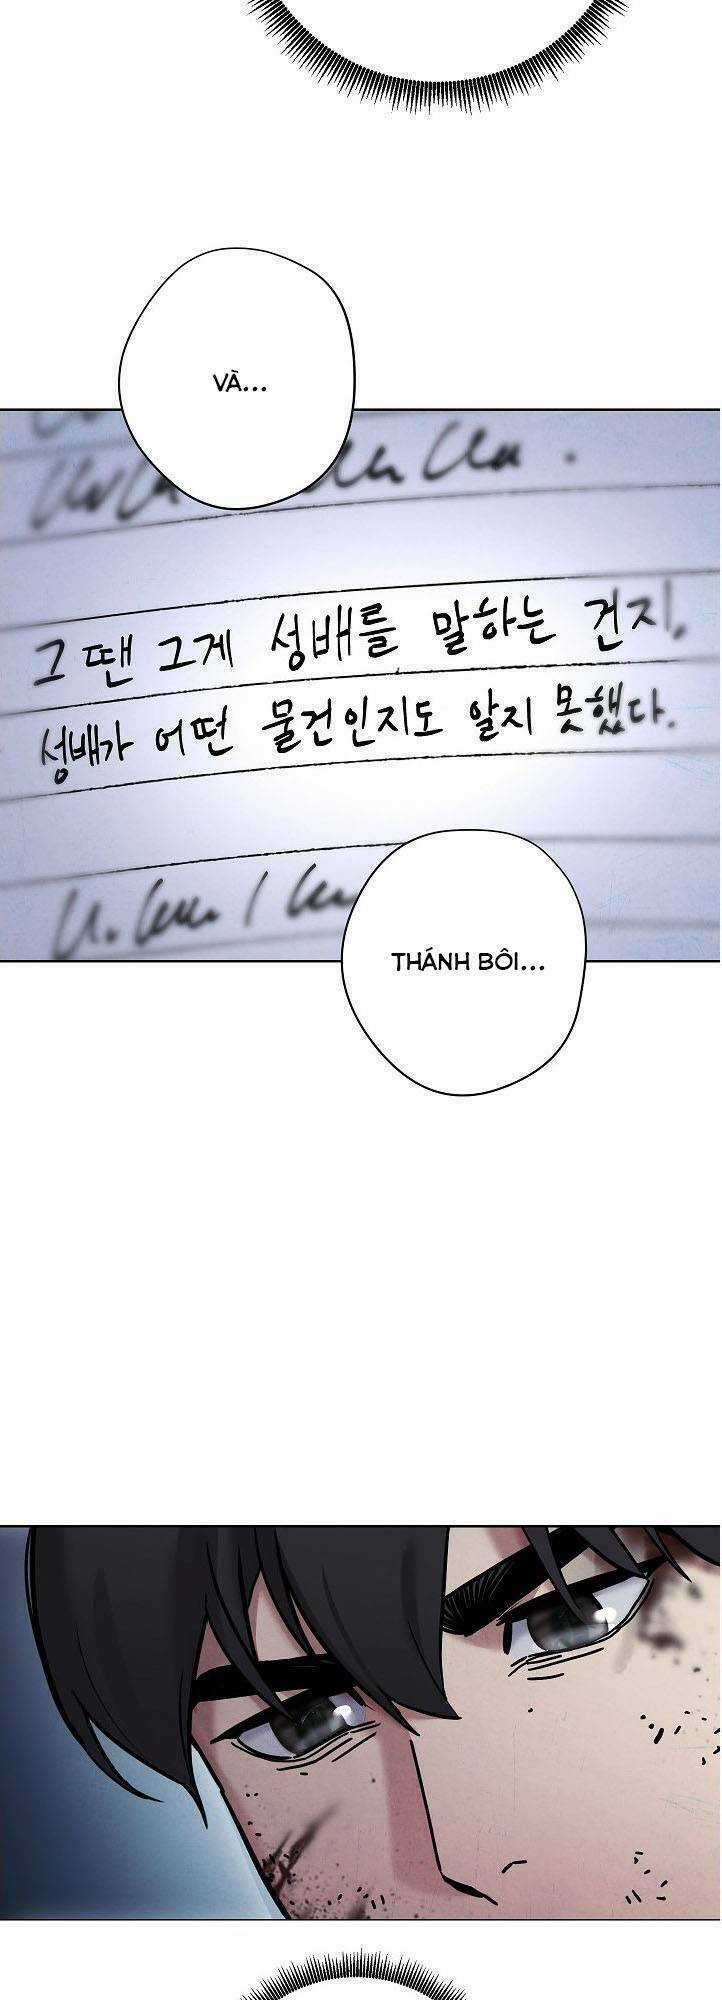 VÀ...
그 땐 그게 성배를 말하는 건지,
성배가 어떤 물건인지도 알지 못했다.
THÁNH BÔI...